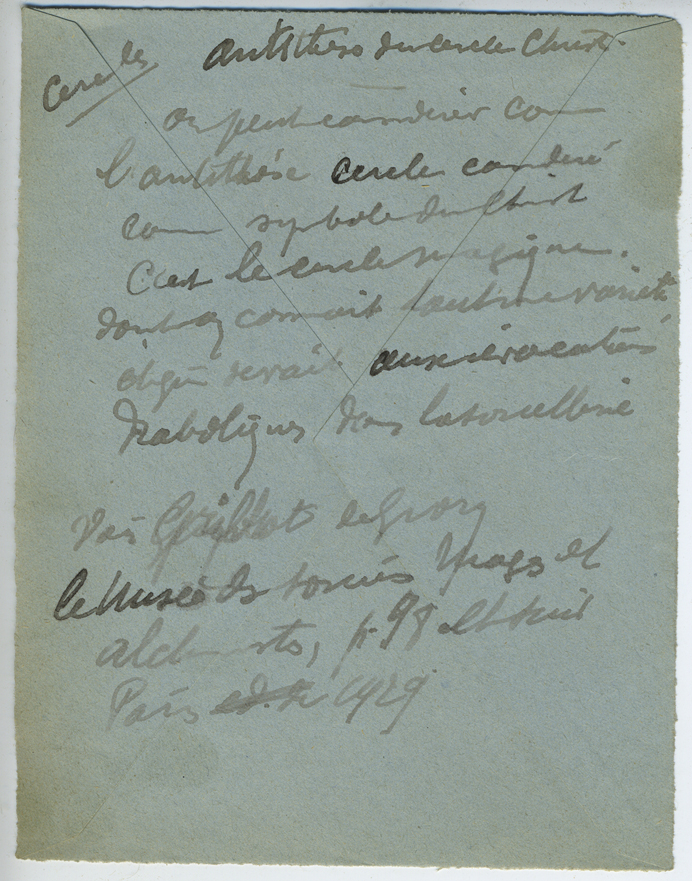 cercles
antithèse du cercle Christ.
on peut considérer com
l'antithèse cercle considéré
com symbole du Christ
C'est le cercle magique.
dont on connait toutes variét
et qui servait aux évocations
diaboliques dans la sorcellerie
Voir Grillot de Givry
le Musée des sorciers Mages et
alchimistes, p. 98 et suiv
Paris 1929